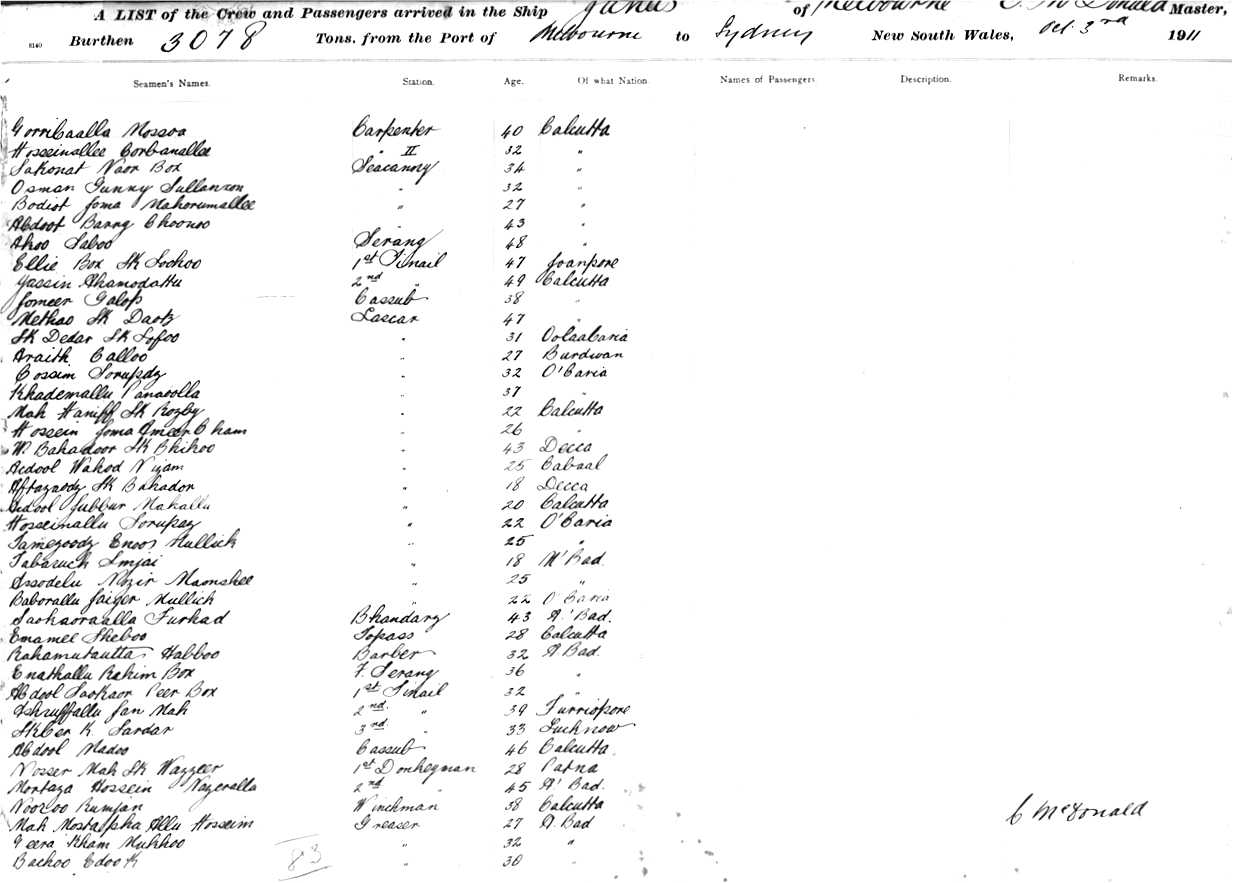 A LIST of the Crew and Passengers arrived in the Ship Janus of Melbourne C. McDonald Master,
8140 Burthen 3078 Tons, from the Port of Melbourne to Sydney New South Wales, Oct. 3rd 1911
Seamen's Names. Station. Age. Of what Nation. Names of Passengers Description. Remarks.
Gorribaalla Mossoa Carpenter 40 Calcutta
Hosseinallee Corbanallee " II 32 "
Sakonat Noor Box Seacanny 34 "
Osman Gunny Sullanxon " 32 "
Bodiot Joma Mahorumallee " 27 "
Abdoot Barry Choonoo " 43 "
Ahoo Saboo Serang 48 "
Ellie Box Sk Sookoo 1st Tinail 47 Joanpore
Yassin Ahamodattu 2nd " 49 Calcutta
Jomeer Galop Cassub 38 "
Methao Sk Daotz Lascar 47 "
Sk Dedar Sk Sofoo " 31 Oolaabaria
Araith Calloo " 27 Burdwan
Cossim Sorupdy " 32 O'Baria
Khademallu Panaoolla " 37 "
Mah Haniff Sk Rozby " 22 Calcutta
Hossein Joma Ameer Cham " 26 "
W. Bahadoor Sk Bhikoo " 43 Decca
Abdool Wahod Nizam " 25 Cabaal
Aftazoody Sk Bahador " 18 Decca
Abdool Jubbur Mahallu " 20 Calcutta
Hosseinallu Sorupdy " 22 O'Baria
Tamezoody Enoos Mullick " 25 "
Tabaruck Imjai " 18 M'Bad.
Assodelu Nozir Maonshee " 25 "
Baborallu Jaiger Mullick " 22 O'Baria
Saokaoraalla Furkad Bhandary 43 A'Bad.
Emamee Sheboo Topass 28 Calcutta
Rahamutautta Habboo Barber 32 A.Bad.
Enathallu Rahim Box F. Serang 36 "
Abdool Saokaor Peer Box 1st Tinail 32 "
Ashruffallu Jan Mah 2nd " 39 Furriopore
Skber K. Sardar 3rd " 33 Lucknow
Abdool Nadoo Cassub 46 Calcutta.
Nosser Mah Sk Wazzeer 1st Donkeyman 28 Patna
Mortaza Hossein Nazeralla 2nd " 45 A'Bad.
Noozoo Rumjan Winchman 38 Calcutta
C McDonald
Mah Mostappha Allu Hosseim Greaser 27 A.Bad
Geera Kham Mukhoo " 32 "
Bachoo Edoo K " 30 "
83